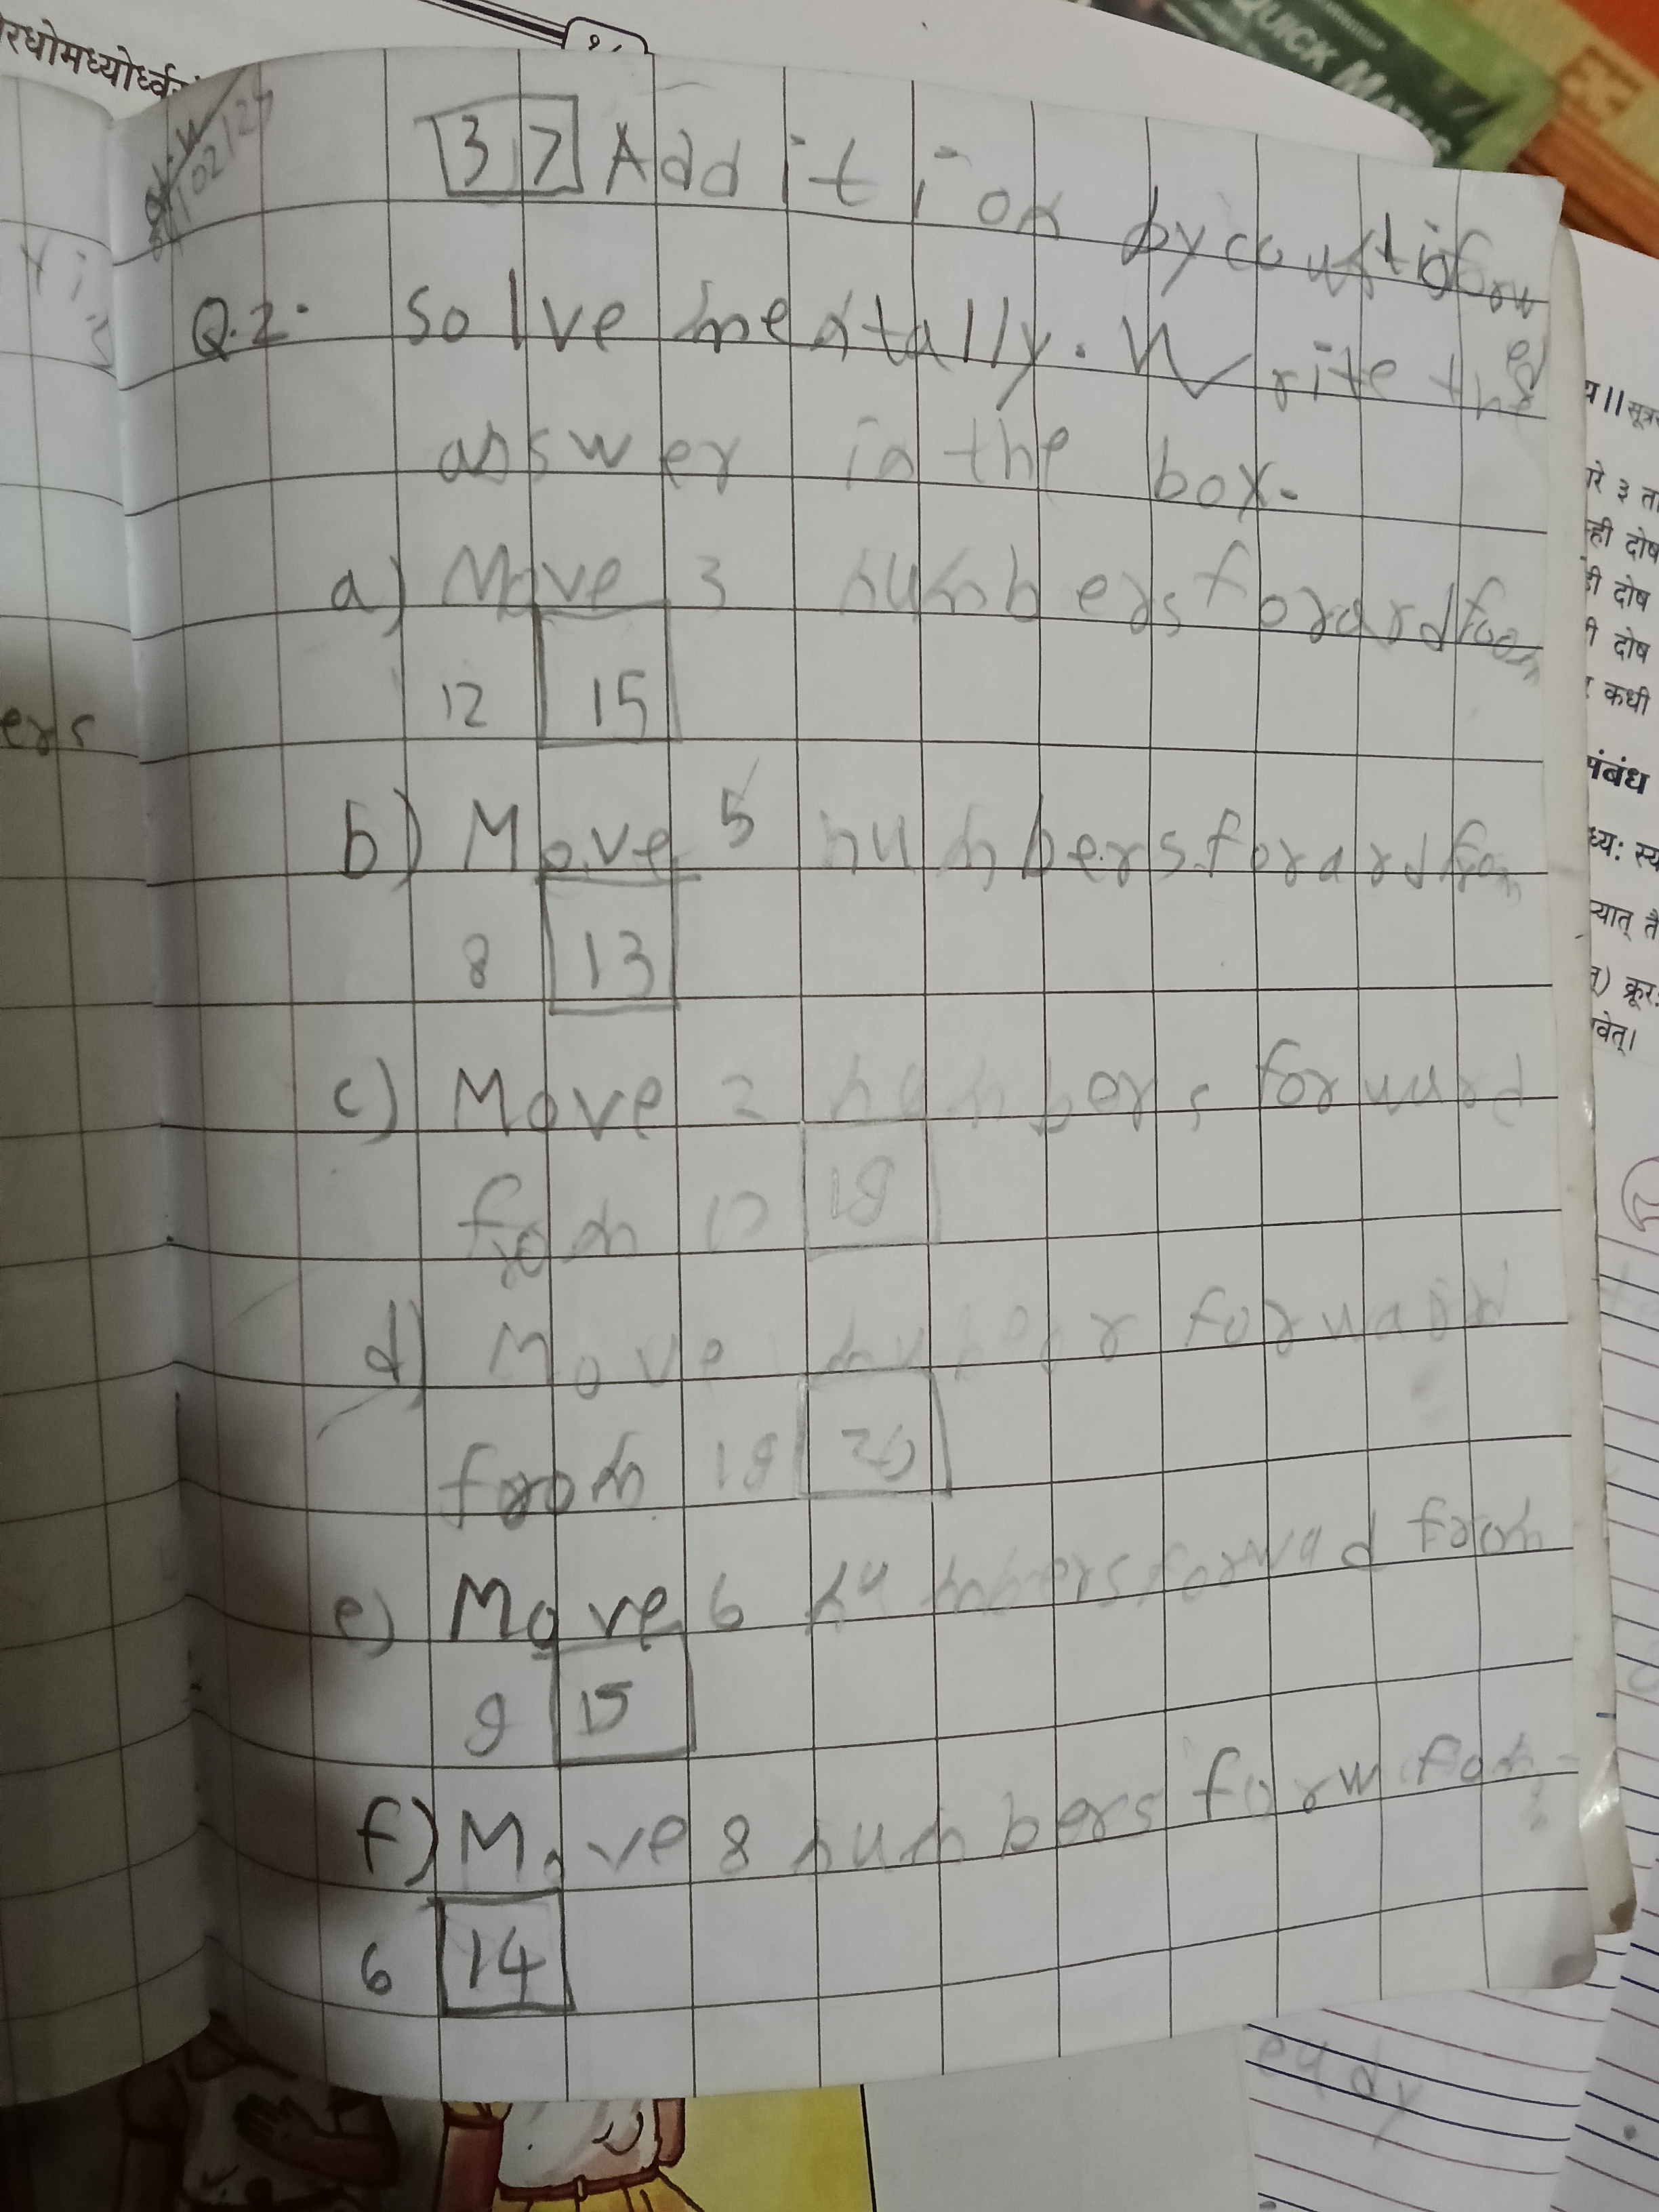 रधोमध्योर्ध्व
QUICK MATHS
37 Addition by counti forw
ed
Q.2. Solve mentally. Write the
answer in the box.
a) Move 3 numbers forard from
12 15
b) Move 5 numbers forard from
8 13
c) Move 2 numbers forward
from 18
d) Move number forward
from 19 20
e) Move 6 numbers forwad from
9 15
f) Move 8 numbers forw fom
6 14
ers
य।। सूत्र
रे ३ ता
ही दोष
ी दोष
दोष
कधी
संबंध
ध्य: स्य
स्यात् तै
क्रूर:
वेत्।
eady